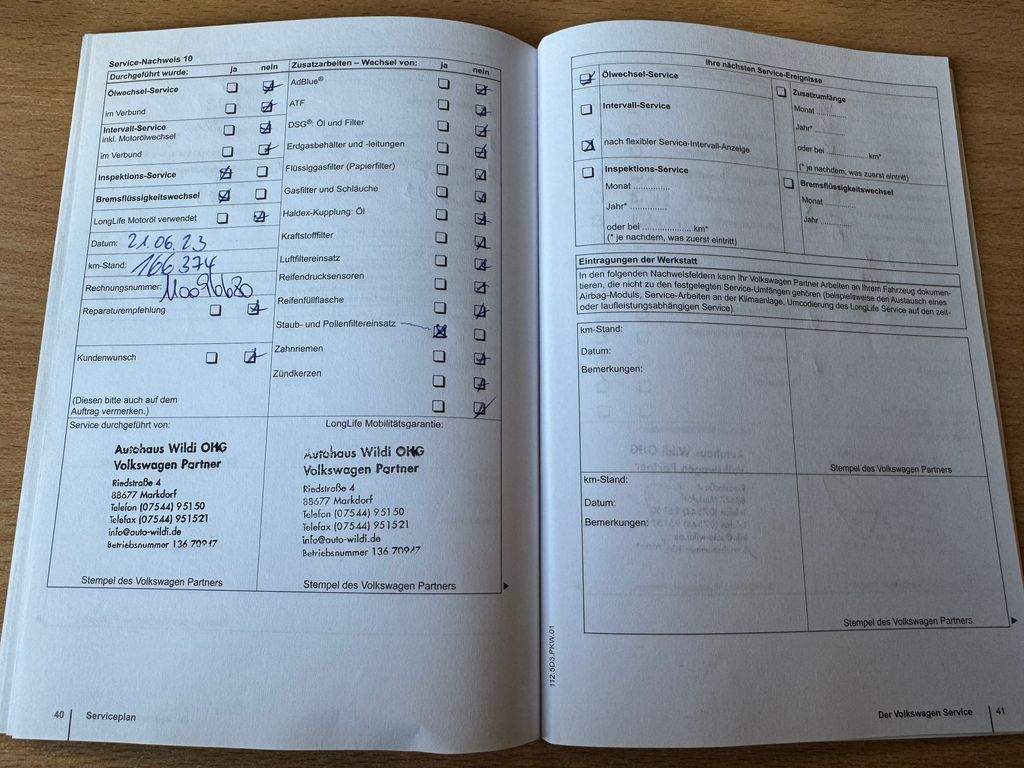 Service-Nachweis 10
Durchgeführt wurde: ja nein
Ölwechsel-Service
im Verbund
Intervall-Service
inkl. Motorölwechsel
im Verbund
Inspektions-Service
Bremsflüssigkeitswechsel
LongLife Motoröl verwendet
Datum: 21.06.23
km-Stand: 166374
Rechnungsnummer: 110096680
Reparaturempfehlung
Kundenwunsch
(Diesen bitte auch auf dem
Auftrag vermerken.)
Zusatzarbeiten – Wechsel von: ja nein
AdBlue®
ATF
DSG®: Öl und Filter
Erdgasbehälter und -leitungen
Flüssiggasfilter (Papierfilter)
Gasfilter und Schläuche
Haldex-Kupplung: Öl
Kraftstofffilter
Luftfiltereinsatz
Reifendrucksensoren
Reifenfüllflasche
Staub- und Pollenfiltereinsatz
Zahnriemen
Zündkerzen
Service durchgeführt von:
Autohaus Wildi OHG
Volkswagen Partner
Riedstraße 4
88677 Markdorf
Telefon (07544) 95150
Telefax (07544) 951521
info@auto-wildi.de
Betriebsnummer 136 70947
Stempel des Volkswagen Partners
LongLife Mobilitätsgarantie:
Autohaus Wildi OHG
Volkswagen Partner
Riedstraße 4
88677 Markdorf
Telefon (07544) 95150
Telefax (07544) 951521
info@auto-wildi.de
Betriebsnummer 136 70947
Stempel des Volkswagen Partners
40 Serviceplan
Ihre nächsten Service-Ereignisse
Ölwechsel-Service
Intervall-Service
nach flexibler Service-Intervall-Anzeige
Inspektions-Service
Monat ..............
Jahr* ..............
oder bei .................... km*
(* je nachdem, was zuerst eintritt)
Zusatzumfänge
Monat ............
Jahr* ............
oder bei ................ km*
(* je nachdem, was zuerst eintritt)
Bremsflüssigkeitswechsel
Monat ............
Jahr ............
Eintragungen der Werkstatt
In den folgenden Nachweisfeldern kann Ihr Volkswagen Partner Arbeiten an Ihrem Fahrzeug dokumen-
tieren, die nicht zu den festgelegten Service-Umfängen gehören (beispielsweise den Austausch eines
Airbag-Moduls, Service-Arbeiten an der Klimaanlage, Umcodierung des LongLife Service auf den zeit-
oder laufleistungsabhängigen Service).
km-Stand:
Datum:
Bemerkungen:
Stempel des Volkswagen Partners
km-Stand:
Datum:
Bemerkungen:
Stempel des Volkswagen Partners
112.5D3.PKW.01
Der Volkswagen Service 41